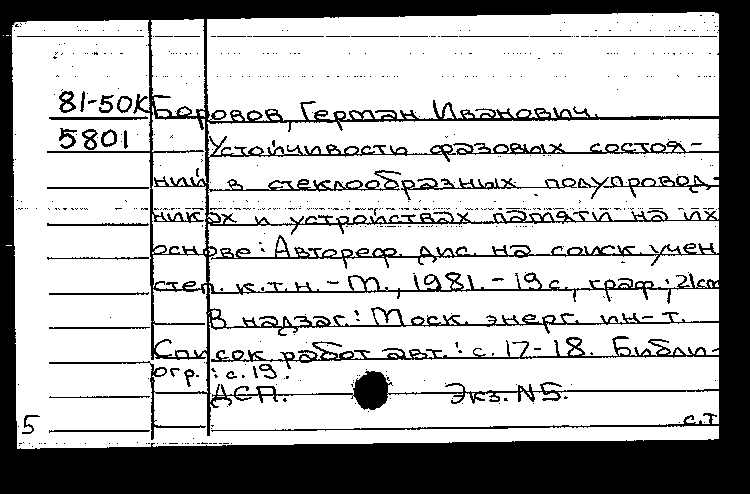 81-50К Боровов, Герман Иванович.
5801 Устойчивости фазовых состоя-
ний в стеклообразных полупровод-
никах и устройствах памяти на их
основе: Автореф. дис. на соиск. учен
степ. к.т.н. - М., 1981. - 19 с., граф.; 21 см
В надзаг.: Моск. энерг. ин-т.
Список работ авт.: с. 17-18. Библи-
огр.: с. 19.
ДСП. Экз. N 5.
5 с.т